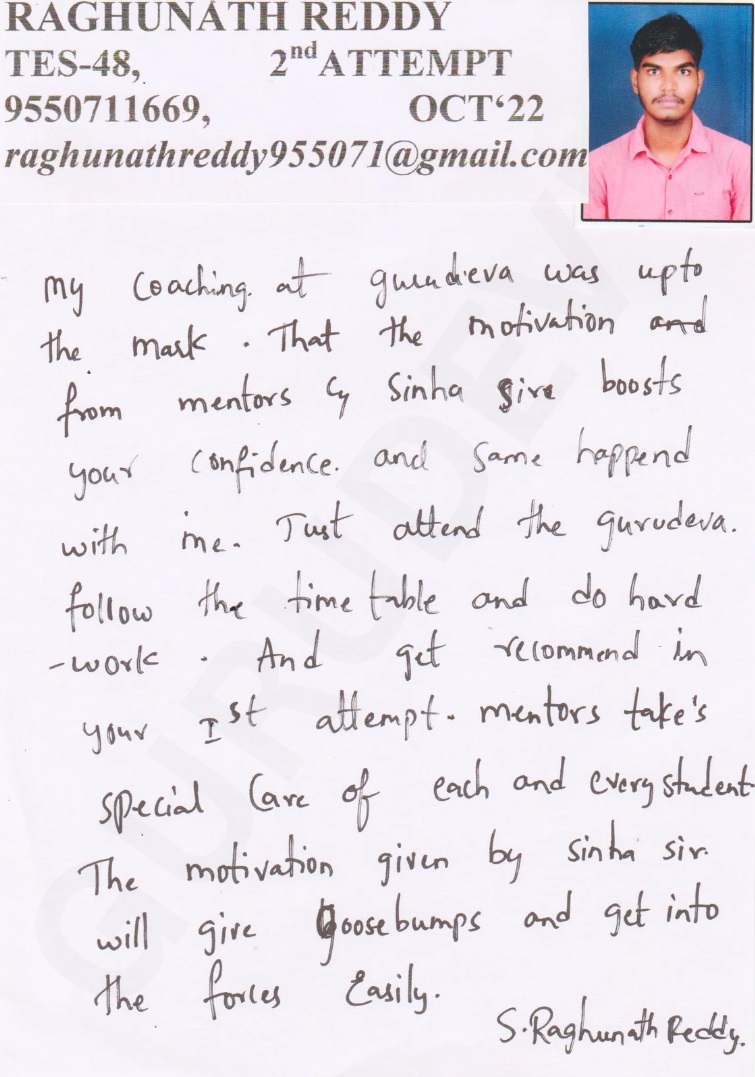 RAGHUNATH REDDY
TES-48, 2nd ATTEMPT
9550711669, OCT‘22
raghunathreddy955071@gmail.com
My Coaching. at gurudieva was upto
the mark . That the motivation and
from mentors Cy Sinha give boosts
your Confidence. and same happend
with me. Just attend the gurudeva.
follow the time table and do hard
-work . And get recommend in
your Ist attempt. mentors take's
special Care of each and every student
The motivation given by sinha sir.
will give Goosebumps and get into
the forces Easily.
S. Raghunath Reddy.
GURUDEV